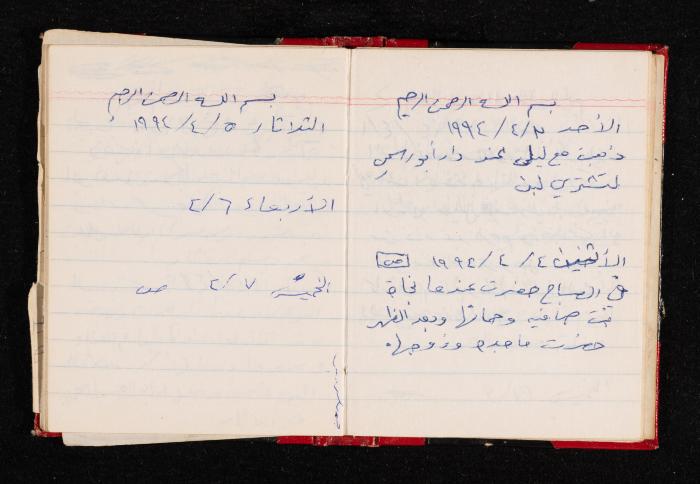 بسم الله الرحمن الرحيم
الأحد ٣/٤/١٩٩٤
ذهبت مع ليلى عند دار أبو
لتشتري لبن
الأثنين ٤/٤/١٩٩٤ ص
في الصباح حضرت عندها نجاة
بنت صافيه وحماتها وبعد الظهر
حضرت ماجده وزوجها.
بسم الله الرحمن الرحيم
الثلاثاء ٥/٤/١٩٩٤ م
الأربعاء ٦/٤
الخميس ٧/٤ ص